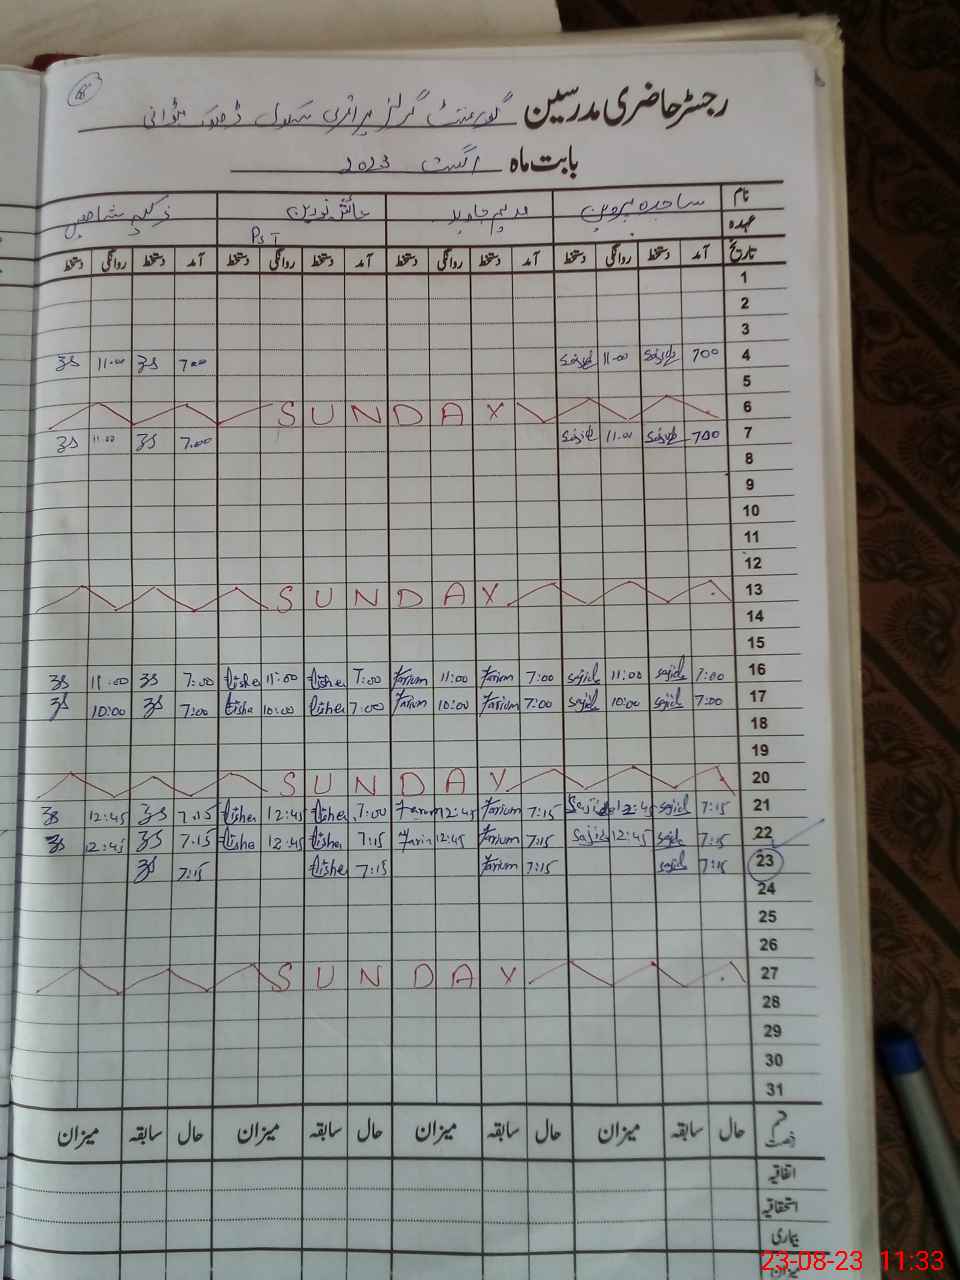 رجسٹر حاضری مدرسین گورنمنٹ گرلز پرائمری سکول ڈھوک
بابت ماہ اگست 2023
نام ساجدہ پروین مریم جاوید عائشہ نورین
عہدہ PST
تاریخ آمد دستخط روانگی دستخط آمد دستخط روانگی دستخط آمد دستخط روانگی دستخط آمد دستخط روانگی دستخط
1
2
3
ZS 11:00 ZS 7:00 Sajid 11:00 Sajid 700 4
5
SUNDAY 6
ZS 11:00 ZS 7:00 Sajid 11:00 Sajid 700 7
8
9
10
11
12
SUNDAY 13
14
15
ZS 11:00 ZS 7:00 Aisha 11:00 Aisha 7:00 Marium 11:00 Marium 7:00 Sajid 11:00 Sajid 7:00 16
ZS 10:00 ZS 7:00 Aisha 10:00 Aisha 7:00 Marium 10:00 Marium 7:00 Sajid 10:00 Sajid 7:00 17
18
19
SUNDAY 20
ZS 12:45 ZS 7:15 Aisha 12:45 Aisha 7:00 Marium 12:45 Marium 7:15 Sajid 12:45 Sajid 7:15 21
ZS 12:45 ZS 7:15 Aisha 12:45 Aisha 7:15 Marium 12:45 Marium 7:15 Sajid 12:45 Sajid 7:15 22
ZS 7:15 Aisha 7:15 Marium 7:15 Sajid 7:15 23
24
25
26
SUNDAY 27
28
29
30
31
قسم رخصت حال سابقہ میزان حال سابقہ میزان حال سابقہ میزان حال سابقہ میزان
اتفاقیہ
استحقاقیہ
بیماری
میزان
23-08-23 11:33